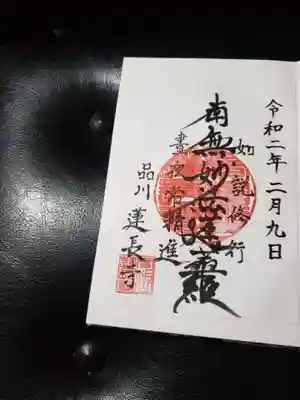 令和二年二月九日
如説修行
南無妙法蓮華経
昼夜常精進
品川 蓮長寺